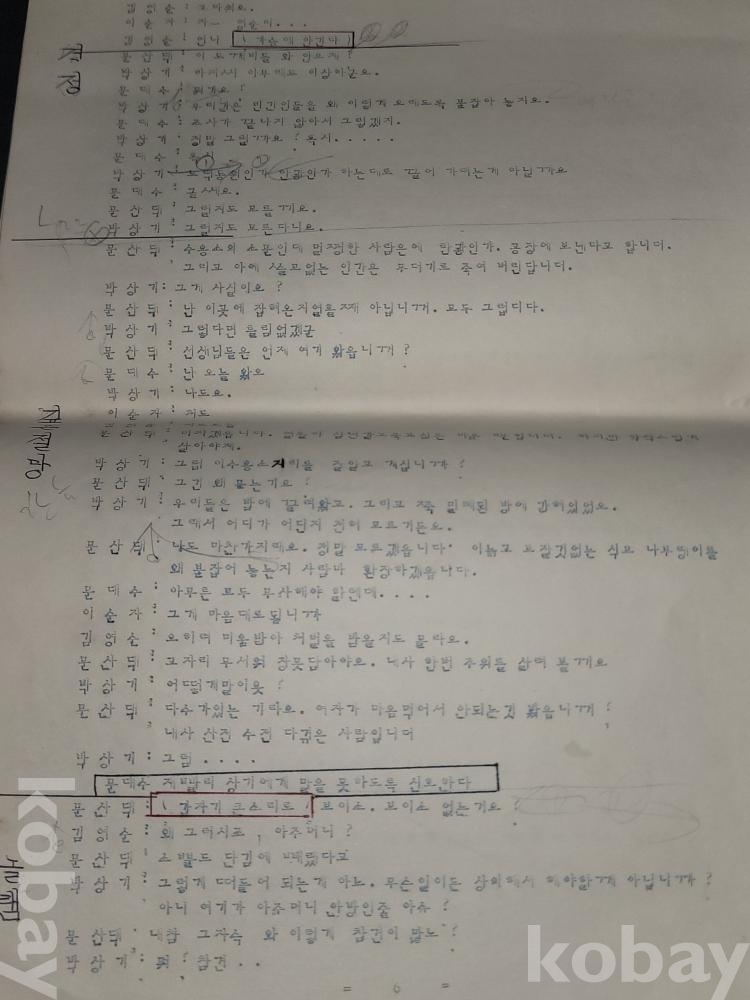 김영순 : 고마워요.
이순자 : 자
김영순 : 언니 ( 가슴에 안긴다 )
문산댁 : 이 도깨비들 와 안오제?
박상기 : 아저씨 이부매도 이상하군요.
문대수 : 뭐가요?
박상기 : 우리같은 민간인들을 왜 이렇게 오래도록 붙잡아 놓지요.
문대수 : 조사가 끝나지 않아서 그렇겠지.
박상기 : 정말 그럴까요? 혹시.....
문대수 : 혹시
박상기 : 노무동원인가 안광인가 하는데로 끌어 가려는게 아닐까요
문대수 : 글쎄요.
문산댁 : 그럴지도 모를께요.
박상기 : 그럴지도 모른다니요.
문산댁 : 수용소의 소문인데 멀쩡한 사람은에 안광인가. 공장에 보낸다고 합니더.
그리고 아예 쓸모없는 인간은 무더기로 죽여 버린답니다.
박상기 : 그게 사실이요?
문산댁 : 난 이곳에 잡혀온지열흘째 아닙니꺼. 모두 그럽디다.
박상기 : 그렇다면 틀림없겠군
문산댁 : 선생님들은 언제 여기 왔읍니꺼?
문대수 : 난 오늘 왔오
박상기 : 나도요.
이순자 : 저도
문산댁 :
살아야제.
박상기 : 그럼 이수용소지리를 좀알고 계십니까?
문산댁 : 그건 왜 묻는기요?
박상기 : 우리들은 밤에 끌려왔고. 그리고 쭉 밀폐된 방에 갇혀있었오.
그래서 어디가 어딘지 전혀 모르거든요.
문산댁 : 나도 마찬가지예요. 정말 모르겠읍니다. 이늙고 보잘것없는 식고 나부랭이를
왜 붙잡어 놓는지 사람마 환장하겠읍니다.
문대수 : 아무튼 모두 무사해야 할텐데....
이순자 : 그게 마음대로됩니까
김영순 : 오히려 미움받아 처벌을 받을지도 몰라요.
문산댁 : 고자리 무서워 장못담아야요. 내사 한번 주위를 살펴 볼께요
박상기 : 어떻게말이웃?
문산댁 : 다수가있는 기라요. 여자가 마음먹어서 안되는것 봤읍니꺼?
내사 산전 수전 다겪은 사람입니더
박상기 : 그럼....
문대수 재빨리 상기에게 말을 못하도록 신호한다
문산댁 : ( 갑자기 큰소리로 ) 보이소. 보이소 없는기요?
김영순 : 왜 그러시죠, 아주머니?
문산댁 : 소뿔도 단김에 빼랬다고
박상기 : 그렇게 떠들어 되는게 아뇨. 무슨일이든 상의해서 해야할게 아닙니까?
아니 여기가 아주머니 안방인줄 아슈?
문산댁 : 내참 그자속 와 이렇게 참견이 많노?
박상기 : 뭐? 참견..
= 6 =
kobay
kobay